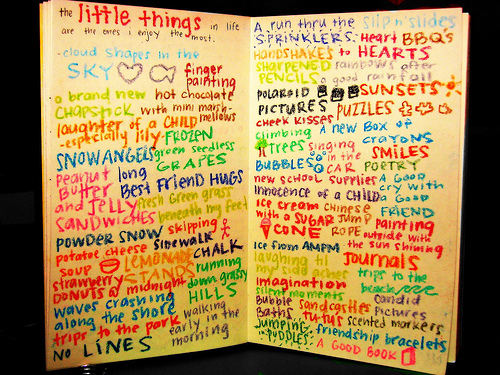 the little things in life
are the ones i enjoy the most.
-cloud shapes in the
SKY finger
painting
a brand new hot chocolate
CHAPSTICK with mini marsh-
mellows
laughter of a CHILD
-especially lily- FROZEN
SNOWANGELS green seedless
GRAPES
peanut long
Butter BEST FRIEND HUGS
and JELLY fresh Green grass
SANDWICHES beneath my feet
POWDER SNOW skipping
potatoe cheese SIDEWALK
soup LEMONADE CHALK
strawberry STANDS running
DONUTS @ midnight down grassy
waves crashing HILLS
along the shore walking
trips to the park early in the
NO LINES morning
A run thru the slip n' slides
SPRINKLERS. Heart BBQ's
HANDSHAKES to HEARTS
SHARPENED rainbows after
PENCILS a good rainfall
POLAROID SUNSETS
PICTURES PUZZLES
cheek kisses
climbing A new Box of
trees singing CRAYONS
in the SMILES
BUBBLES CAR POETRY
new school supplies A Good
innocence of a CHILD cry with
a Good
ice cream Chinese FRIEND
with a SUGAR JUMP painting
CONE ROPE outside with
ice from AMPM the sun shining
laughing til Journals
my side aches trips to the
imagination beach
silent moments candid
Bubble sandcastles pictures
Baths TUTUS scented markers
JUMPING friendship bracelets
PUDDLES A GOOD BOOK